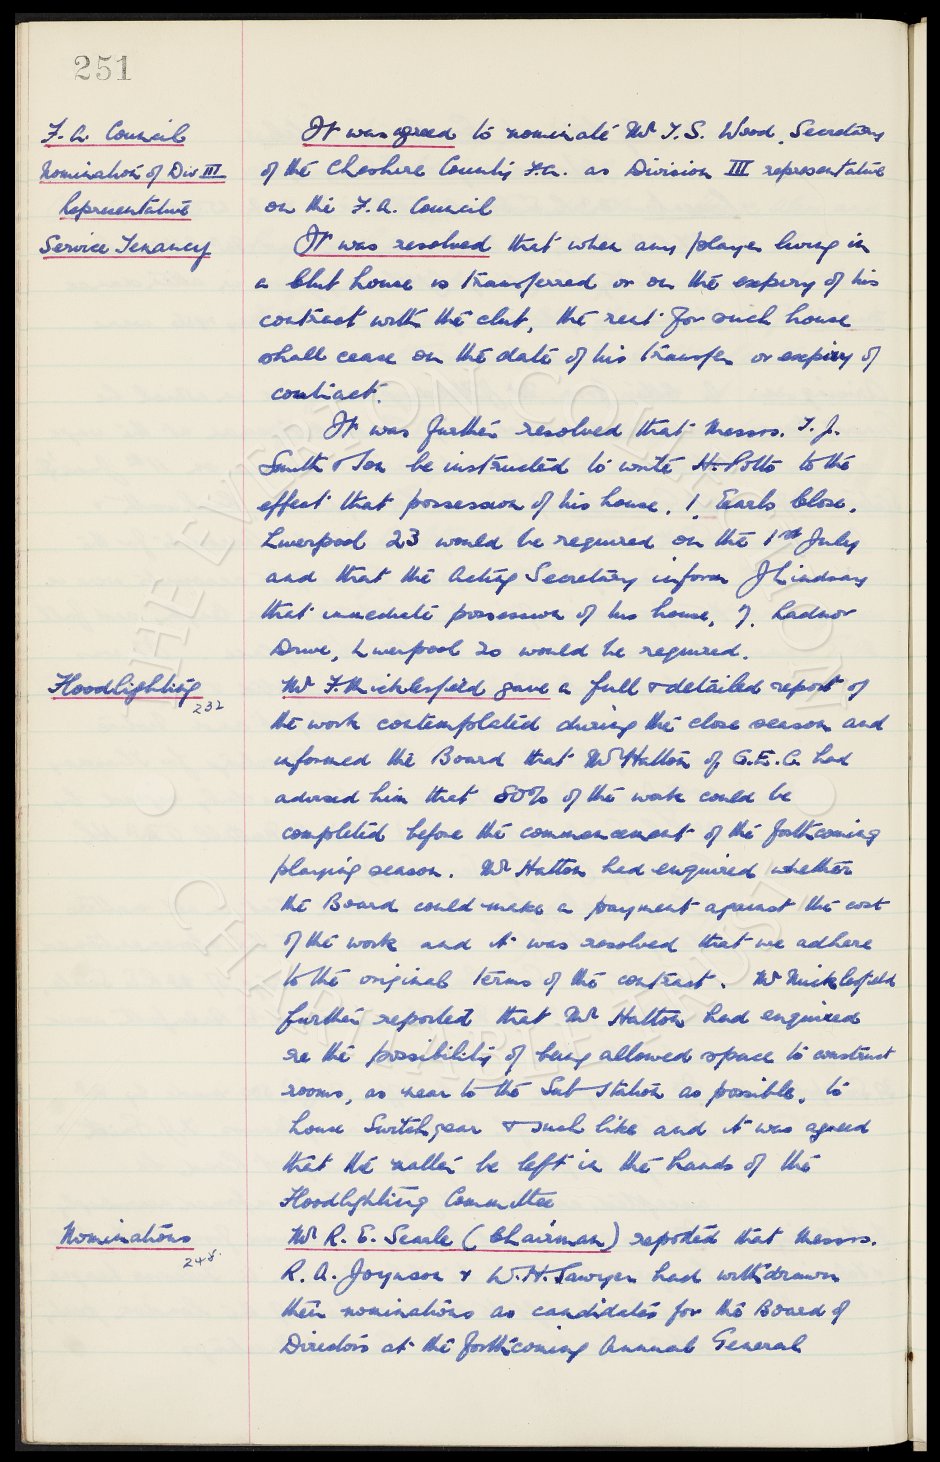 251
F.A. Council
Nomination of Div III
Representative
Service Tenancy
It was agreed to nominate Mr T.S. Wood, Secretary
of the Cheshire County F.A. as Division III representative
on the F.A. Council
It was resolved that when any player living in
a Club house is transferred or on the expiry of his
contract with the club, the rent for such house
shall cease on the date of his transfer or expiry of
contract.
It was further resolved that Messrs. T.J.
Smith & Son be instructed to write H. Potts to the
effect that possession of his house, 1, Earls Close,
Liverpool 23 would be required on the 1st July
and that the Acting Secretary inform J Lindsay
that immediate possession of his house, 7, Radnor
Drive, Liverpool 20 would be required.
Floodlighting
232
Mr F. Micklesfield gave a full & detailed report of
the work contemplated during the close season and
informed the Board that Mr Hatton of G.E.C. had
advised him that 80% of the work could be
completed before the commencement of the forthcoming
playing season. Mr Hatton had enquired whether
the Board could make a payment against the cost
of the work and it was resolved that we adhere
to the original terms of the contract. Mr Micklesfield
further reported that Mr Hatton had enquired
re the possibility of being allowed space to construct
rooms, as near to the Sub Station as possible, to
house Switchgear & such like and it was agreed
that the matter be left in the hands of the
Floodlighting Committee
Nominations
248.
Mr R.E. Searle (Chairman) reported that Messrs.
R.A. Joynson & W.H. Sawyer had withdrawn
their nominations as candidates for the Board of
Directors at the forthcoming Annual General
THE EVERTON COLLECTION
CHARITABLE TRUST